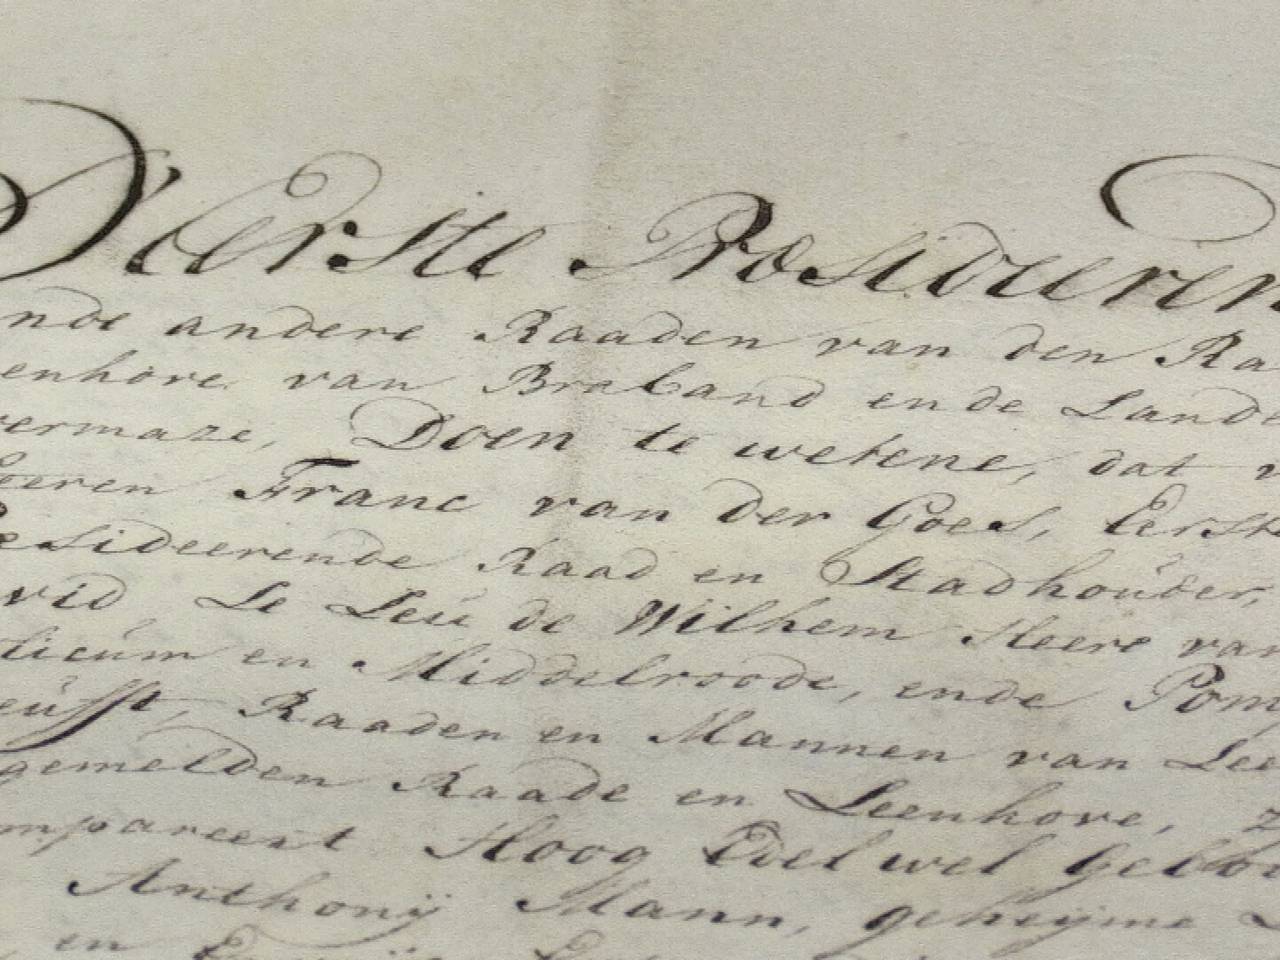 D'Eerste Presideeren
nde andere Raaden van den Ra
enhove van Braband ende Lande
vermaze, Doen te wetene, dat v
Heeren Franc van der Goes, Eerste
esideerende Raad en Stadhouder,
vid Le Leu de Wilhem Heere van
tlicum en Middelroode, ende Pom
eufft, Raaden en Mannen van Lee
gemelden Raade en Leenhove, z
mpareert Hoog Edel wel Gebo
Anthonij Mann, geheijme
en